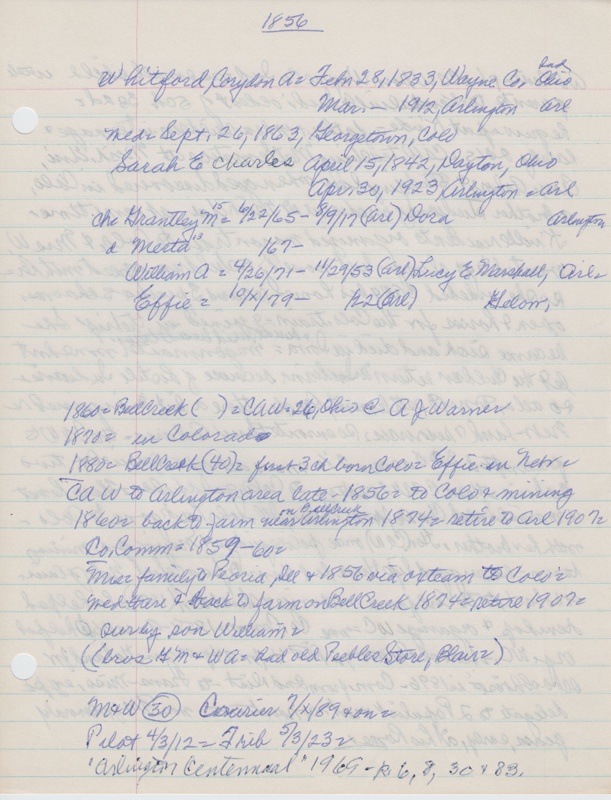 1856
bad
Whitford, Corydon A = Febr 28, 1833, Wayne Co, Ohio
Mar. — 1912, Arlington Arl
med = Sept. 26, 1863, Georgetown, Colo
Sarah E Charles April 15, 1842, Dayton, Ohio
Apr. 30, 1923, Arlington = Arl
ch = Grantley M 15 = 6/22/65 - 8/9/17 (Arl) Dora Arlington
d Metta 13 /67 -
William A = 4/26/71 - 11/29/53 (Arl) Lucy E. Marshall, Arl =
Effie = 10/x/79 - (Arl)
1860 = Bell Creek ( ) = CAW = 26, Ohio @ A J Warner
1870 = - in Colorado
1880 = Bell Creek (40) = first 3 ch born Colo = Effie - in Nebr =
CAW to Arlington area late - 1856 = to Colo + mining
on Bell Creek
1860 = back to farm near Arlington 1874 = retire to Arl 1907 =
Co, Comm = 1859 - 60 =
family to Peoria, Ill + 1856 via ox team to Colo =
med there + back to farm on Bell Creek 1874 = retire 1907 =
surv by son William =
((bros G M + W A = had old Peebles Store, Blair =)
M + W (30) Courier 7/x/89 + on =
Pilot 4/3/12 = Trib 5/3/23 =
"Arlington Centennial" 1969 - p. 6, 8, 30 + 83.